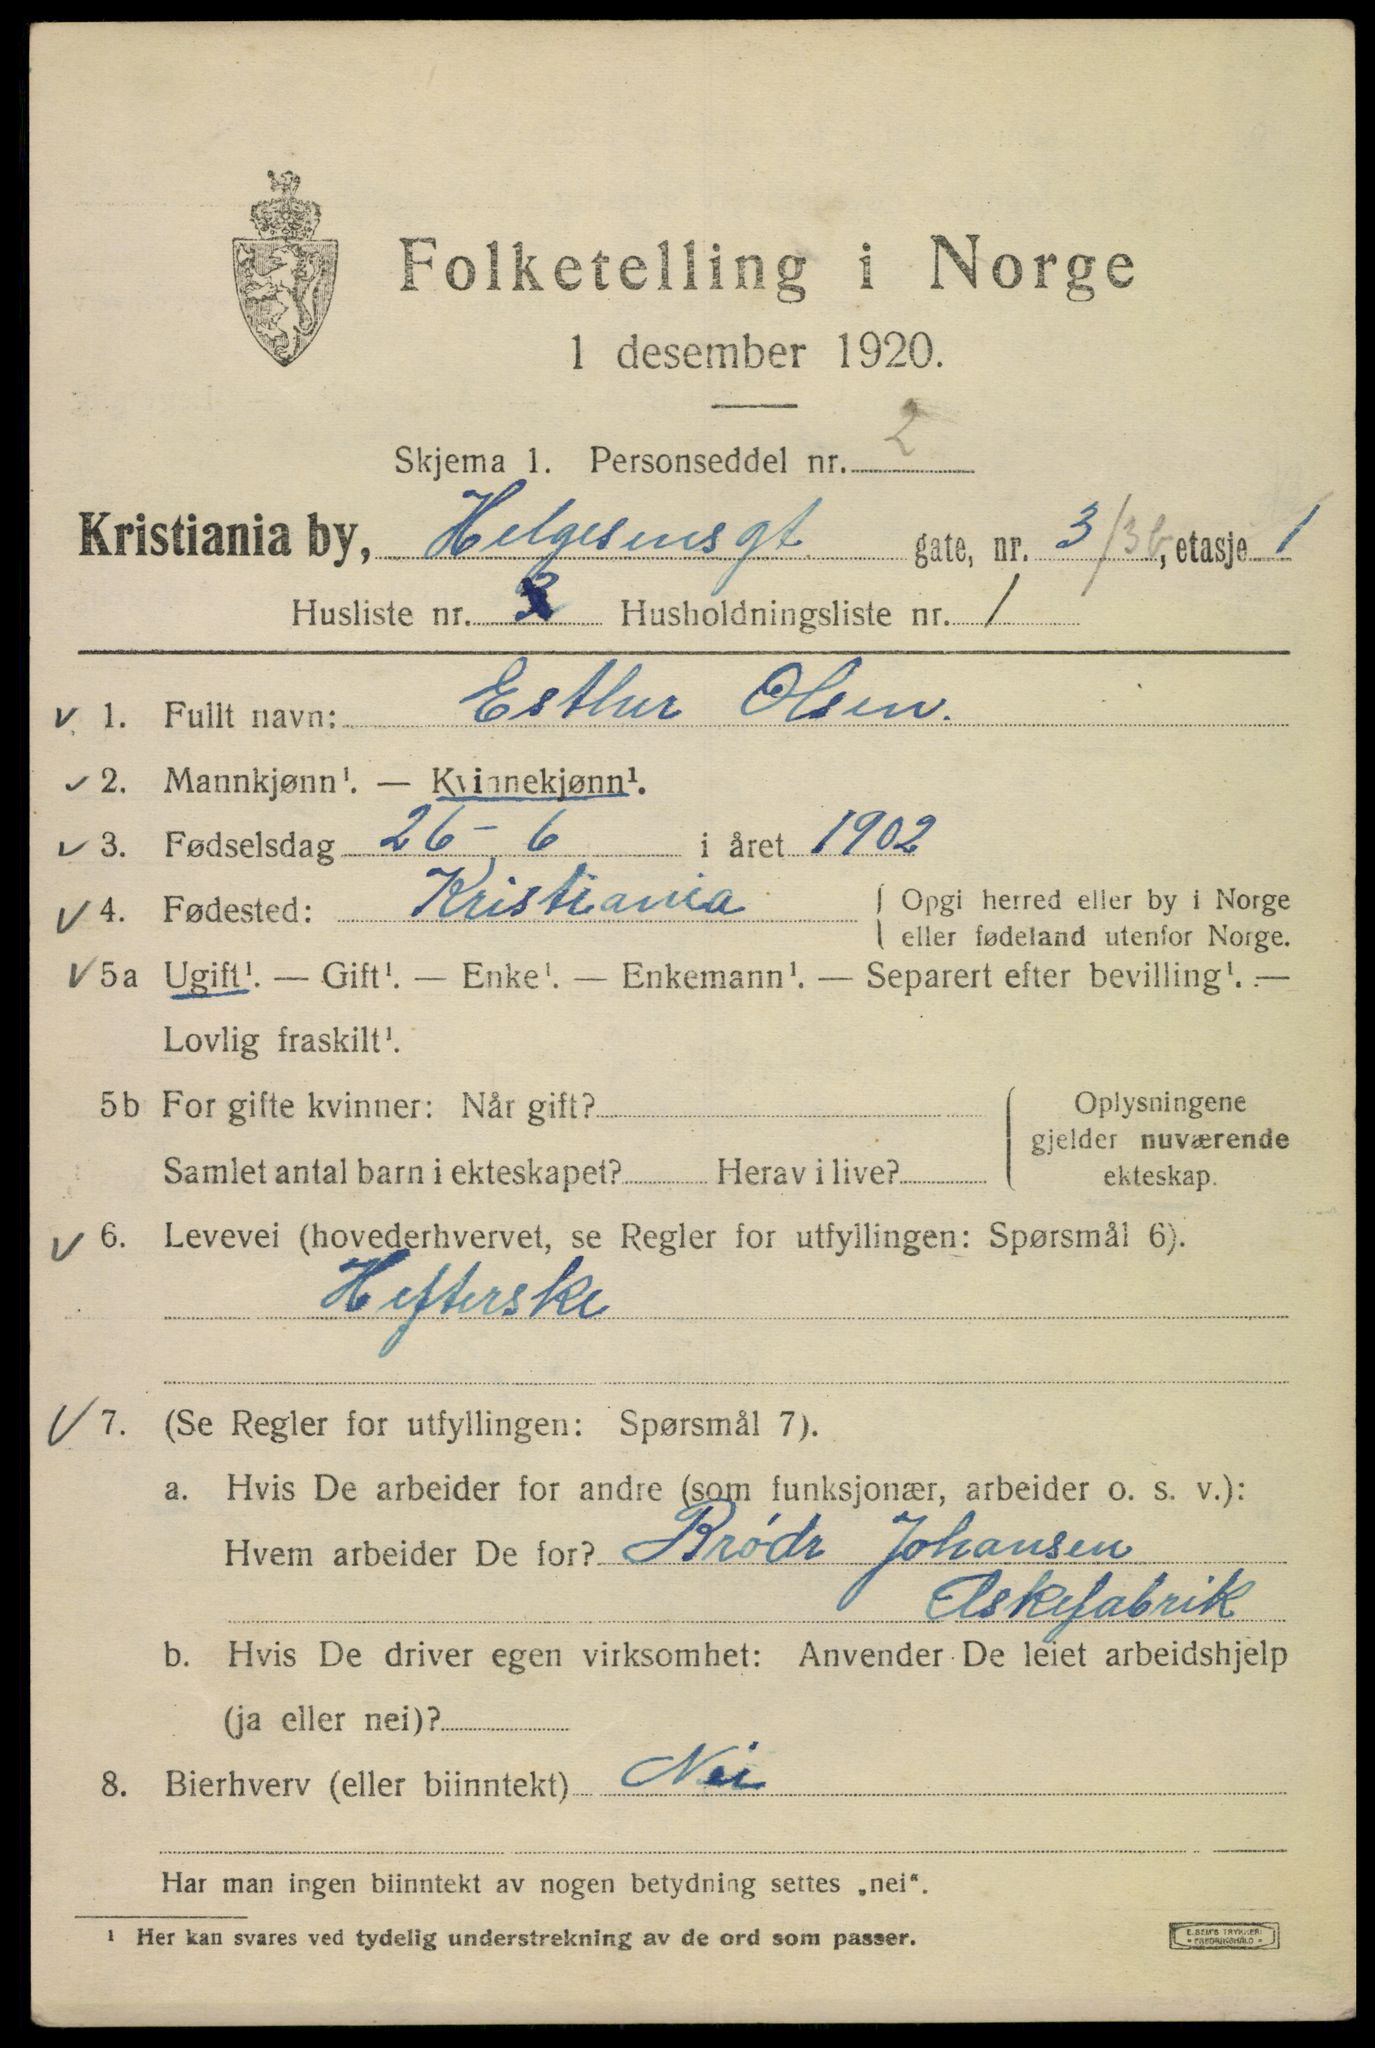 Folketelling i Norge
1 desember 1920.
Skjema 1. Personseddel nr. 2
Kristiania by, Helgesensgt. gate, nr. 3/3b, etasje 1
Husliste nr. Husholdningsliste nr. 1
1. Fullt navn: Esther Olsen.
2. Mannkjønn¹. — Kvinnekjønn¹.
3. Fødselsdag 26 - 6 i året 1902
4. Fødested: Kristiania { Opgi herred eller by i Norge
eller fødeland utenfor Norge.
5a Ugift¹. — Gift¹. — Enke¹. — Enkemann¹. — Separert efter bevilling¹. —
Lovlig fraskilt¹.
5b For gifte kvinner: Når gift? Oplysningene
gjelder nuværende
Samlet antal barn i ekteskapet? Herav i live? ekteskap.
6. Levevei (hovederhvervet, se Regler for utfyllingen: Spørsmål 6).
Hefterske
7. (Se Regler for utfyllingen: Spørsmål 7).
a. Hvis De arbeider for andre (som funksjonær, arbeider o. s. v.):
Hvem arbeider De for? Brødr Johansen
Eskefabrik
b. Hvis De driver egen virksomhet: Anvender De leiet arbeidshjelp
(ja eller nei)?
8. Bierhverv (eller biinntekt) Nei
Har man ingen biinntekt av nogen betydning settes „nei“.
¹ Her kan svares ved tydelig understrekning av de ord som passer.
E. SEM'S TRYKKERI
FREDRIKSHALD